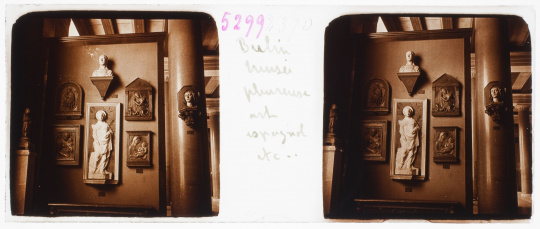 5299
Berlin
Musée
pleureuse
art
espagnol
etc...